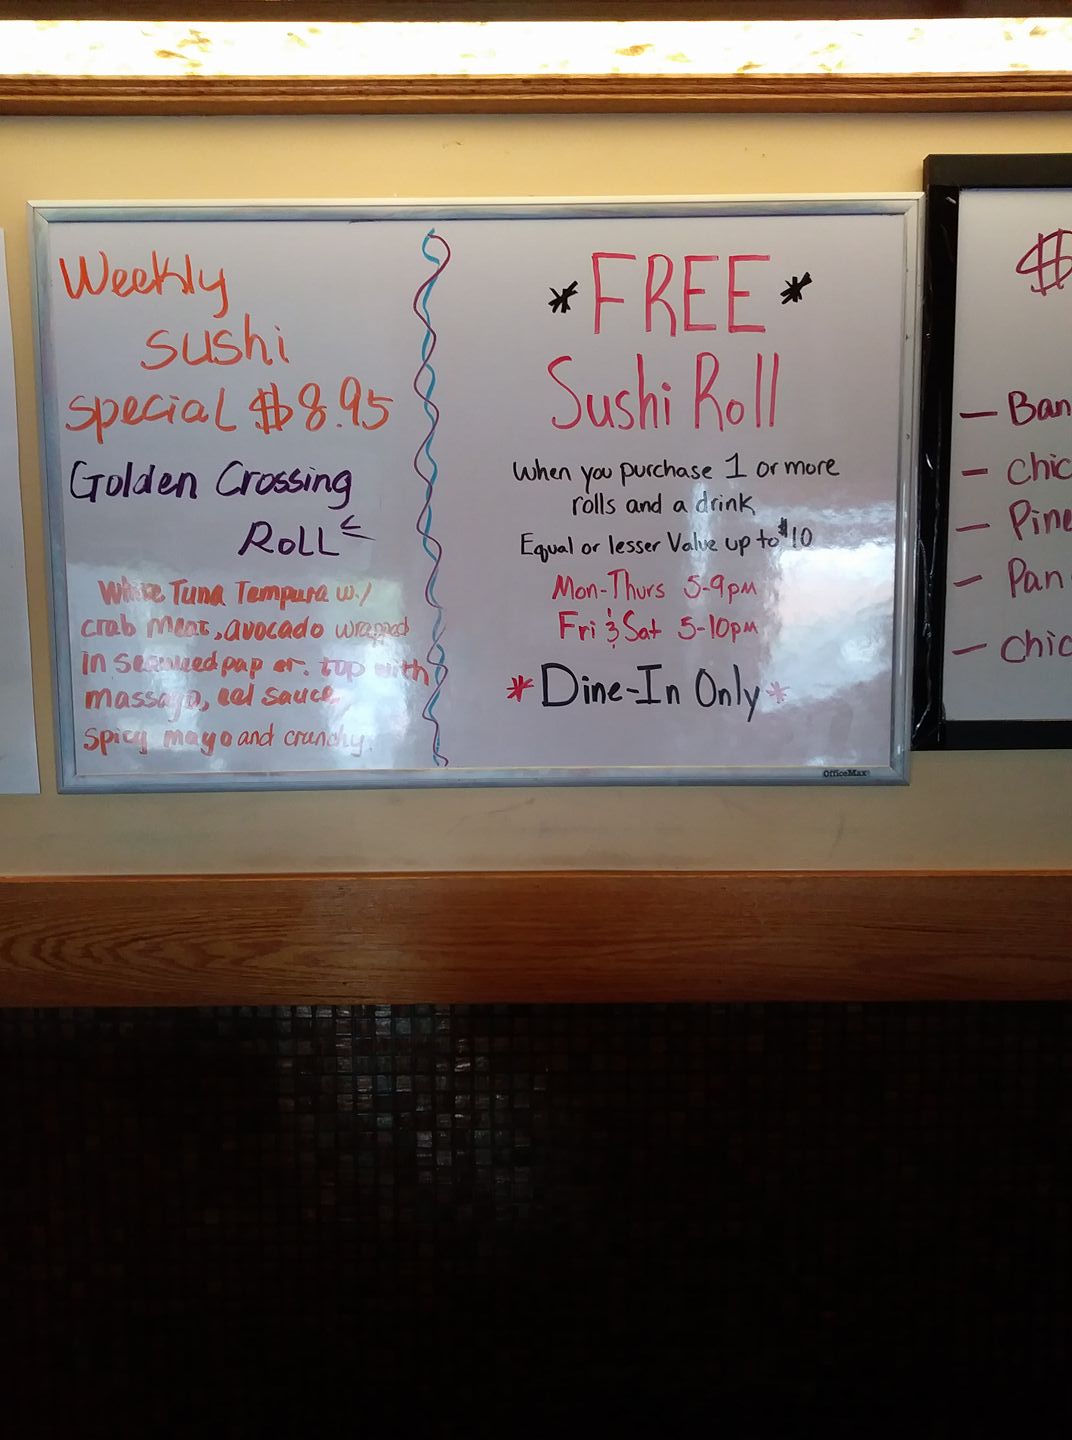 Weekly
sushi
special $8.95
Golden Crossing
Roll
White Tuna Tempura w/
crab meat, avocado wrapped
in seaweed paper. top with
massago, eel sauce
spicy mayo and crunchy.
*FREE*
Sushi Roll
When you purchase 1 or more
rolls and a drink
Equal or lesser Value up to $10
Mon-Thurs 5-9pm
Fri & Sat 5-10pm
*Dine-In Only*
OfficeMax
$
— Ban
— Chic
— Pine
— Pan
— Chic